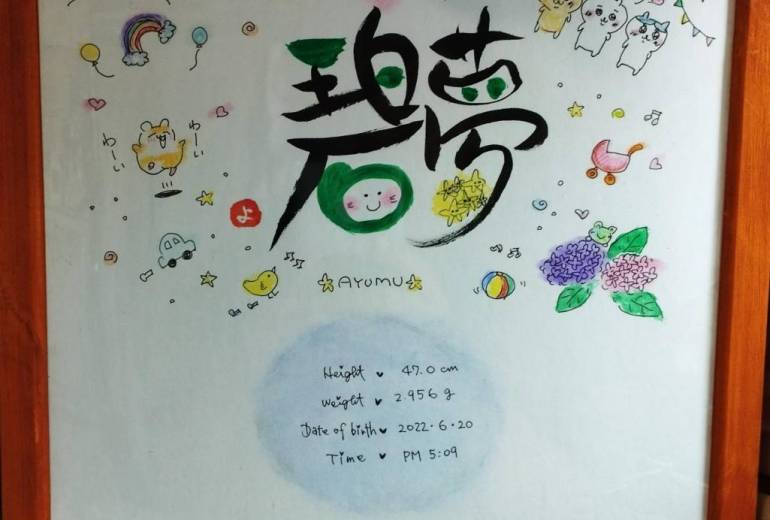 碧夢
わーい
わーい
よ
AYUMU
Height 47.0 cm
weight 2.956 g
Date of birth 2022・6・20
Time PM 5:09